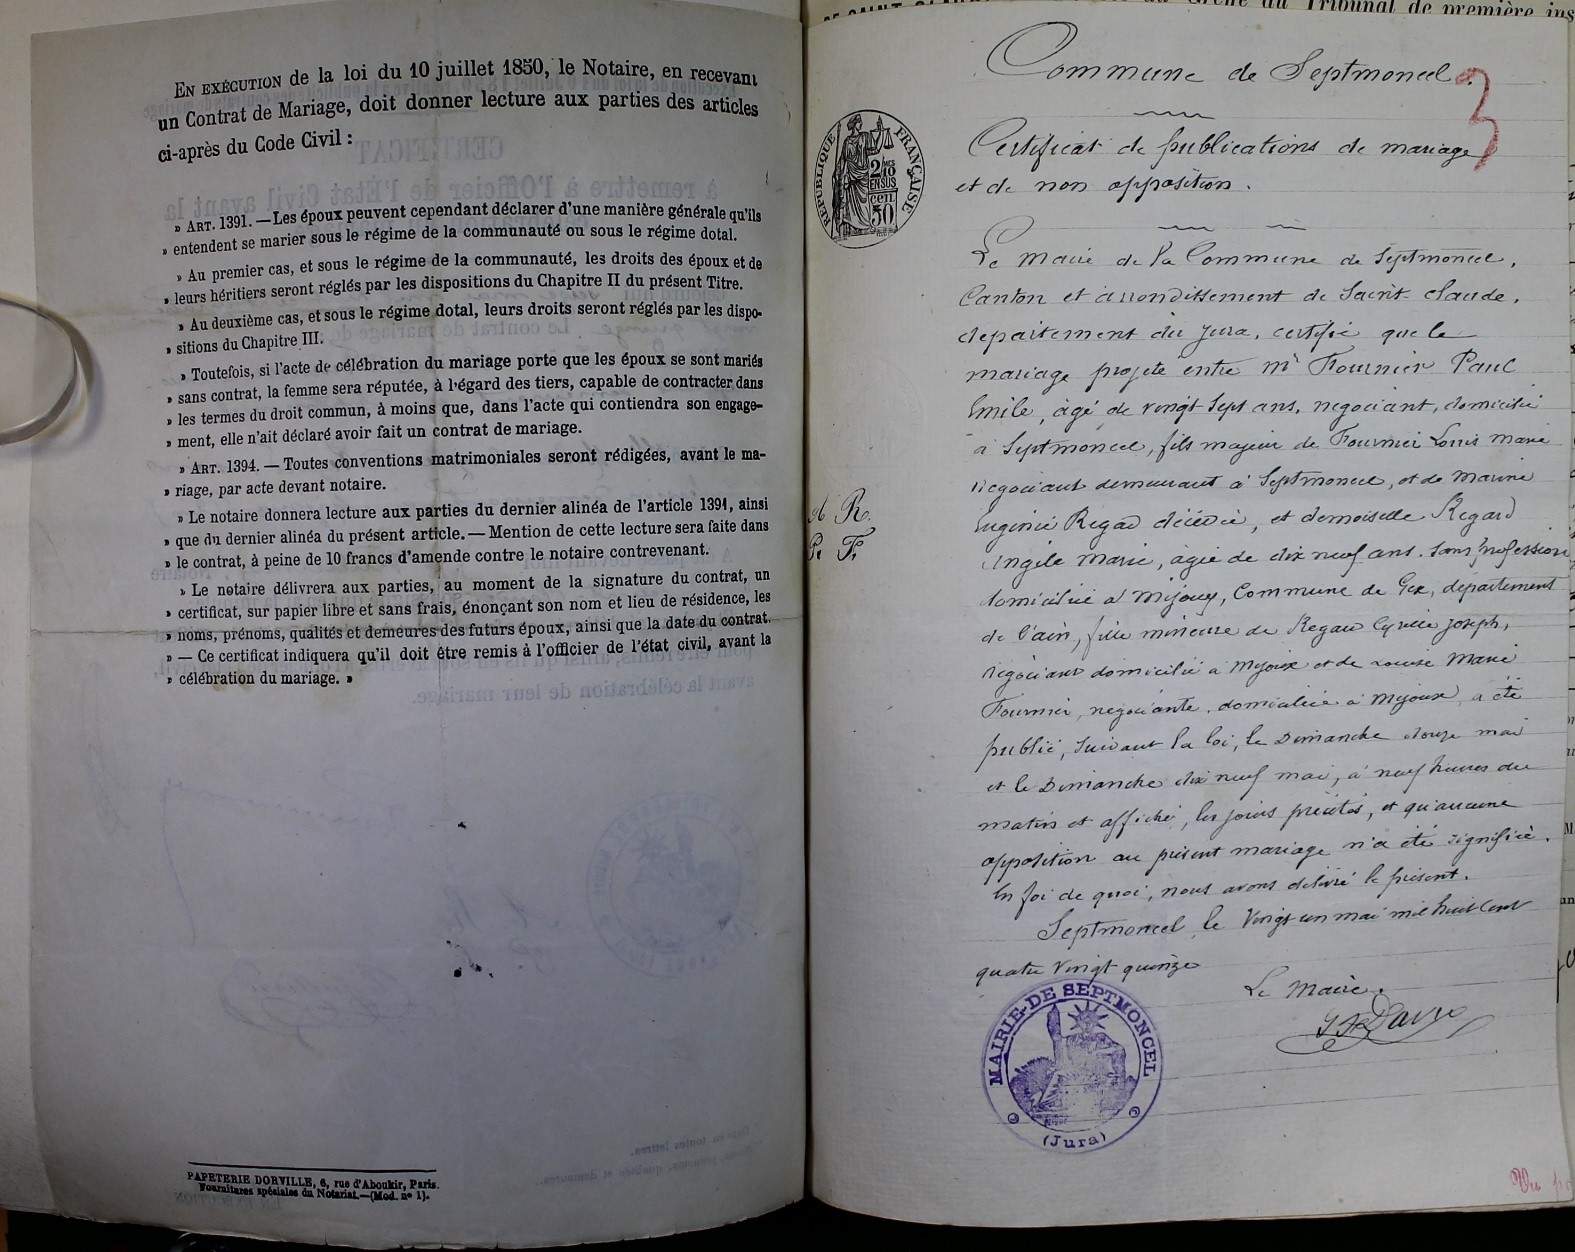 En exécution de la loi du 10 juillet 1850, le Notaire, en recevant
un Contrat de Mariage, doit donner lecture aux parties des articles
ci-après du Code Civil :
» Art. 1391. — Les époux peuvent cependant déclarer d'une manière générale qu'ils
» entendent se marier sous le régime de la communauté ou sous le régime dotal.
» Au premier cas, et sous le régime de la communauté, les droits des époux et de
» leurs héritiers seront réglés par les dispositions du Chapitre II du présent Titre.
» Au deuxième cas, et sous le régime dotal, leurs droits seront réglés par les dispo-
» sitions du Chapitre III.
» Toutefois, si l'acte de célébration du mariage porte que les époux se sont mariés
» sans contrat, la femme sera réputée, à l'égard des tiers, capable de contracter dans
» les termes du droit commun, à moins que, dans l'acte qui contiendra son engage-
» ment, elle n'ait déclaré avoir fait un contrat de mariage.
» Art. 1394. — Toutes conventions matrimoniales seront rédigées, avant le ma-
» riage, par acte devant notaire.
» Le notaire donnera lecture aux parties du dernier alinéa de l'article 1391, ainsi
» que du dernier alinéa du présent article. — Mention de cette lecture sera faite dans
» le contrat, à peine de 10 francs d'amende contre le notaire contrevenant.
» Le notaire délivrera aux parties, au moment de la signature du contrat, un
» certificat, sur papier libre et sans frais, énonçant son nom et lieu de résidence, les
» noms, prénoms, qualités et demeures des futurs époux, ainsi que la date du contrat.
» — Ce certificat indiquera qu'il doit être remis à l'officier de l'état civil, avant la
» célébration du mariage. »
PAPETERIE DORVILLE, 6, rue d'Aboukir, Paris.
Fournitures spéciales du Notariat. — (Mod. n° 1).
du Tribunal de première ins
Commune de Septmoncel.
3
RÉPUBLIQUE FRANÇAISE
2/10 EN SUS
50 CENT
Certificat de publications de mariage
et de non opposition.
Le Maire de la Commune de Septmoncel,
Canton et arrondissement de Saint-Claude,
département du Jura, certifie que le
mariage projeté entre Mr Fournier Paul
Emile, âgé de vingt sept ans, négociant, domicilié
à Septmoncel, fils majeur de Fournier Louis Marie
négociant demeurant à Septmoncel, et de Marie
Eugénie Regad décédée, et demoiselle Regard
Angèle Marie, agée de dix neuf ans, sans profession
domiciliée à Mijoux, Commune de Gex, département
de l'ain, fille mineure de Regad Cyrille Joseph,
négociant domicilié à Mijoux et de Louise Marie
Fournier, négociante, domiciliée à Mijoux, a été
publié, suivant la loi, le Dimanche douze mai
et le Dimanche dix neuf mai, à neuf heures du
matin et affiché, les jours précités, et qu'aucune
opposition au présent mariage n'a été signifiée.
En foi de quoi, nous avons délivré le présent.
Septmoncel, le vingt un mai mil huit cent
quatre vingt quinze
Le Maire.
R.
F.
MAIRIE DE SEPTMONCEL
(Jura)